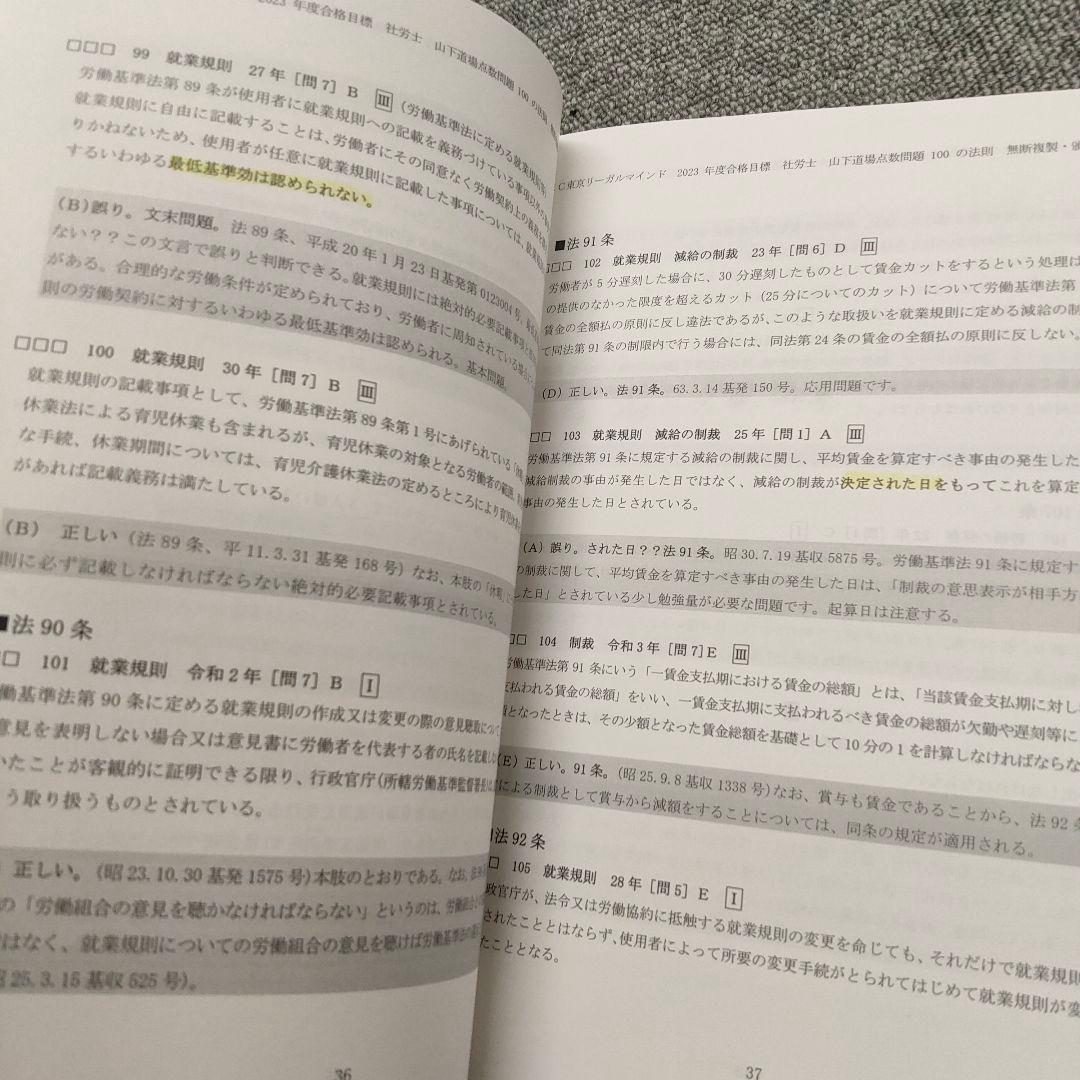 2023 年度合格目標 社労士 山下道場点数問題 100 の法則
□□□ 99 就業規則 27年［問7］B Ⅲ
労働基準法第 89 条が使用者に就業規則への記載を義務づけている事項以外の
（労働基準法に定める就業規則等）
就業規則に自由に記載することは、労働者にその同意なく労働契約上の義務を
りかねないため、使用者が任意に就業規則に記載した事項については、就業規
するいわゆる最低基準効は認められない。
(B)誤り。文末問題。法 89 条、平成 20 年 1 月 23 日基発第 0123004 号。
ない？？この文言で誤りと判断できる。就業規則には絶対的必要記載事項と
がある。合理的な労働条件が定められており、労働者に周知されている場合
則の労働契約に対するいわゆる最低基準効は認められる。基本問題。
□□□ 100 就業規則 30年［問7］B Ⅲ
就業規則の記載事項として、労働基準法第 89 条第 1 号にあげられている「休暇」
休業法による育児休業も含まれるが、育児休業の対象となる労働者の範囲
な手続、休業期間については、育児介護休業法の定めるところにより育児休業
があれば記載義務は満たしている。
(B) 正しい（法 89 条、平 11.3.31 基発 168 号）なお、本肢の「休暇」に
則に必ず記載しなければならない絶対的必要記載事項とされている。
■法 90 条
□ 101 就業規則 令和2年［問7］B Ⅰ
働基準法第 90 条に定める就業規則の作成又は変更の際の意見聴取につい
意見を表明しない場合又は意見書に労働者を代表する者の氏名を記載し
いたことが客観的に証明できる限り、行政官庁(所轄労働基準監督署長)は
う取り扱うものとされている。
正しい。(昭 23.10.30 基発 1575 号)本肢のとおりである。なお、
の「労働組合の意見を聴かなければならない」というのは、労働組合
ではなく、就業規則についての労働組合の意見を聴けば労働基準法の
昭 25.3.15 基収 525 号)。
36
C 東京リーガルマインド 2023 年度合格目標 社労士 山下道場点数問題 100 の法則 無断複製・頒
■法 91 条
□□ 102 就業規則 減給の制裁 23年［問6］D Ⅲ
労働者が 5 分遅刻した場合に、30 分遅刻したものとして賃金カットをするという処理は
の提供のなかった限度を超えるカット（25 分についてのカット）について労働基準法第
賃金の全額払の原則に反し違法であるが、このような取扱いを就業規則に定める減給の制
て同法第 91 条の制限内で行う場合には、同法第 24 条の賃金の全額払の原則に反しない。
(D) 正しい。法 91 条。63.3.14 基発 150 号。応用問題です。
□□ 103 就業規則 減給の制裁 25年［問1］A Ⅲ
労働基準法第 91 条に規定する減給の制裁に関し、平均賃金を算定すべき事由の発生した
減給制裁の事由が発生した日ではなく、減給の制裁が決定された日をもってこれを算定
事由の発生した日とされている。
(A) 誤り。された日？？法 91 条。昭 30.7.19 基収 5875 号。労働基準法 91 条に規定す
の制裁に関して、平均賃金を算定すべき事由の発生した日は、「制裁の意思表示が相手方
した日」とされている少し勉強量が必要な問題です。起算日は注意する。
□□ 104 制裁 令和3年［問7］E Ⅲ
労働基準法第 91 条にいう「一賃金支払期における賃金の総額」とは、「当該賃金支払期に対し
支払われる賃金の総額」をいい、一賃金支払期に支払われるべき賃金の総額が欠勤や遅刻等に
額となったときは、その少額となった賃金総額を基礎として 10 分の 1 を計算しなければならな
(E) 正しい。91 条。(昭 25.9.8 基収 1338 号)なお、賞与も賃金であることから、法 92 条
による制裁として賞与から減額をすることについては、同条の規定が適用される。
■法 92 条
□ 105 就業規則 28年［問5］E Ⅰ
政官庁が、法令又は労働協約に抵触する就業規則の変更を命じても、それだけで就業規則
されたこととはならず、使用者によって所要の変更手続がとられてはじめて就業規則が変
たこととなる。
37